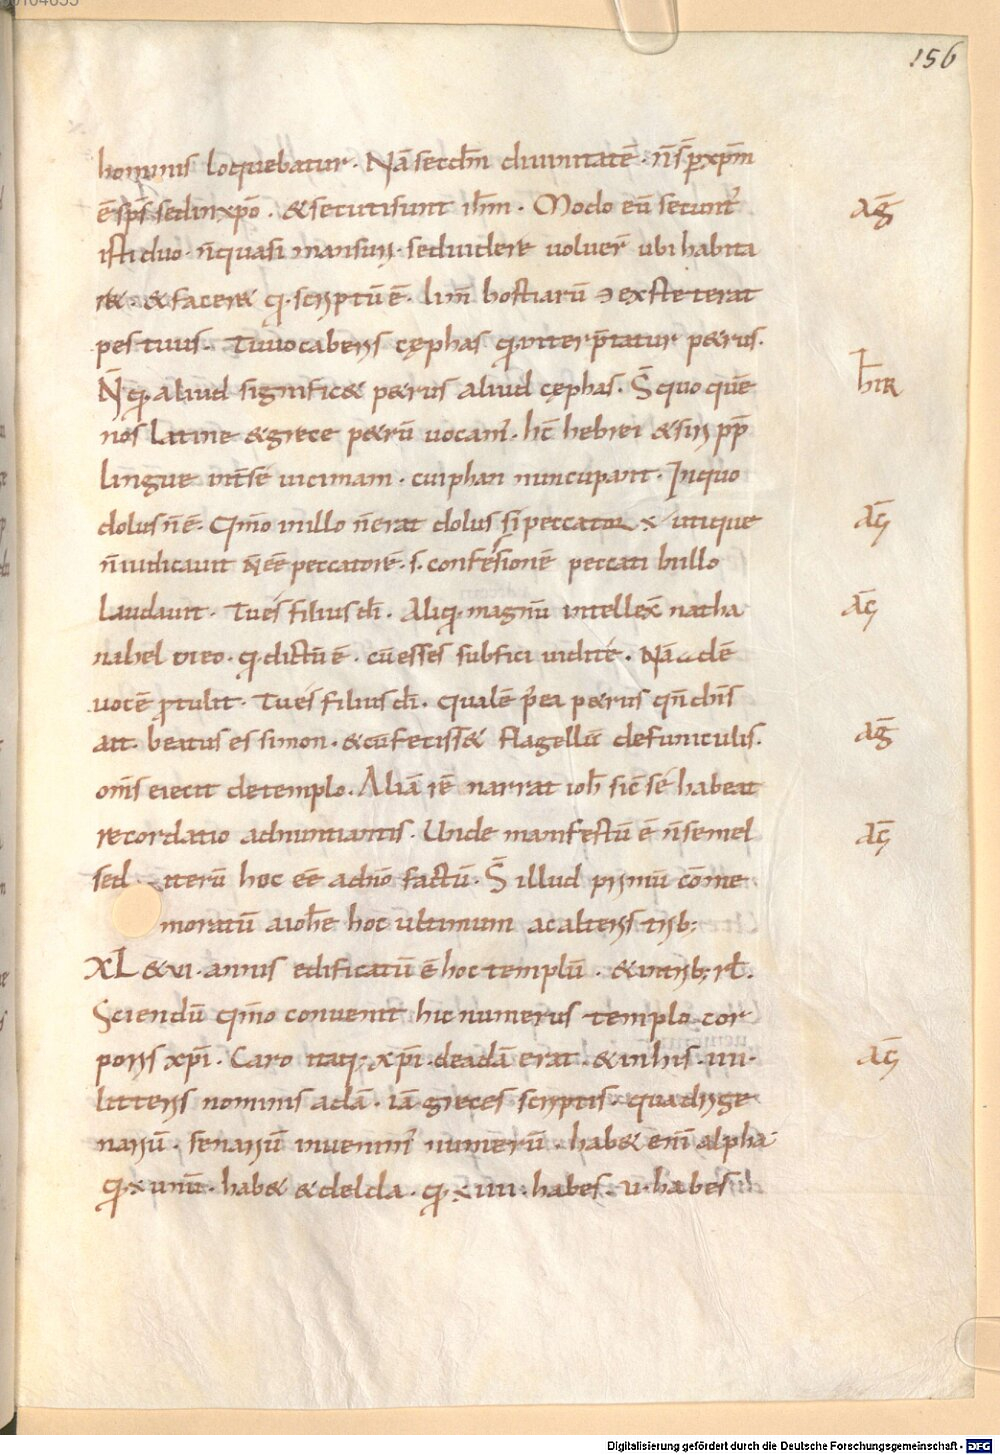 156
hominis loquebatur· Nā secdm̄ diuinitatē· n̄ s̄ p xp̄m
ē sp̄s sed in xp̄o· & secuti sunt ih̄m· Modo eū secunt᷒ aḡ
isti duo· n̄ quasi mansuri· sed uidere uoluer̄ ubi habita
r&· & facere q· scriptū ē·
pes tuus· Tu uocaberis cephas q· interp̄tatur petrus·
N̄ q· aliud signific& petrus aliud cephas· S̄ quo quē hir
nos latine & grece petrū uocam᷒· hc̄ hebrei & siri pp̄
lingue int̄ se uicinam· cuiphan nuncupant· In quo
dolus n̄ ē· Qm̄o in illo n̄ erat dolus si peccator utique ac̄
n̄ iudicauit n̄ eē peccatorē· s· confessionē peccati in illo
laudauit· Tu es filius dī· Aliq· magnū intellex natha ac̄
nahel uiro· q· dictū ē· cū esses sub fici uidi te· Nā & dē
uocē p̄tulit· Tu es filius dī· qualē p̄ea petrus qn̄ dn̄s
ait· beatus es simon· & cū feciss& flagellū de funiculis· aḡ
om̄s eiecit de templo· Aliā rē narrat ioh̄ sic̄ se habeat
recordatio adnuntiantis· Unde manifestū ē n̄ semel ac̄
sed iterū hoc eē a dn̄o factū· S̄ illud primū cōme
moratū a ioh̄e hoc ultimum ac alteris trib;
XL & ui· annis edificatū ē hoc templū· & in trib; rl̄·
Sciendū qm̄o conuenit hic numerus templo cor
poris xp̄i· Caro itaq; xp̄i· de adā erat· & in his· iiii· ac̄
litteris nominis adā· iā greces scriptis· quadrage
nariū· senariū inuenim᷒ numerū· hab& eni alpha
q· × unū· hab& & delda· q· × iiii· habes· u· habes
Digitalisierung gefördert durch die Deutsche Forschungsgemeinschaft - DFG